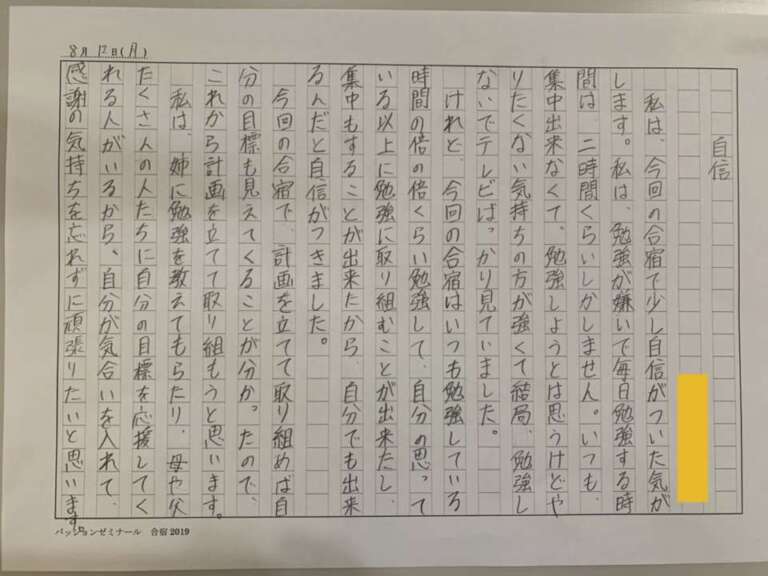 8月12日(月)
自信
私は、今回の合宿で少し自信がついた気が
します。私は、勉強が嫌いで毎日勉強する時
間は、二時間くらいしかしません。いつも、
集中出来なくて、勉強しようとは思うけどや
りたくない気持ちの方が強くて結局、勉強し
ないでテレビばっかり見ていました。
けれど、今回の合宿はいつも勉強している
時間の倍の倍くらい勉強して、自分の思って
いる以上に勉強に取り組むことが出来たし、
集中もすることが出来たから、自分でも出来
るんだと自信がつきました。
今回の合宿で、計画を立てて取り組めば自
分の目標も見えてくることが分かったので、
これから計画を立てて取り組もうと思います。
私は、姉に勉強を教えてもらたり、母や父
たくさんの人たちに自分の目標を応援してく
れる人がいるから、自分が気合いを入れて、
感謝の気持ちを忘れずに頑張りたいと思います。
パッションゼミナール 合宿2019